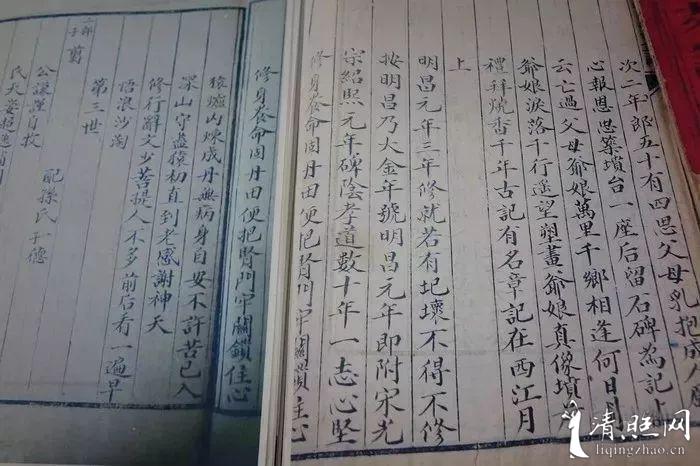 次二年郎五十有四思父母乳抱成人
心報恩思築墳台一座后留石碑為記上
云亡過父母爺娘萬里千鄉相逢何日月
爺娘淚落千行遥望塑畫爺娘真像墳
禮拜燒香千年古記有名章記在西江月
上
明昌元年三年修就若有圮壞不得不修
按明昌乃大金年號明昌元年即附宋光
宗紹熙元年碑陰孝道數十年一志心堅
修身養命固丹田便把腎門牢關鎖住心
修身養命固丹田便把腎門牢關鎖住心
猿爐內煉成丹無病身自安不許苦已入
深山守盡猿初直到老感謝神天
修行辭文少苦提人不多前后看一遍早
悟浪沙淘
第三世
二郎子 翦
公諱自牧 配孫氏 子德
氏天姿
清照网
liqingzhao.cn